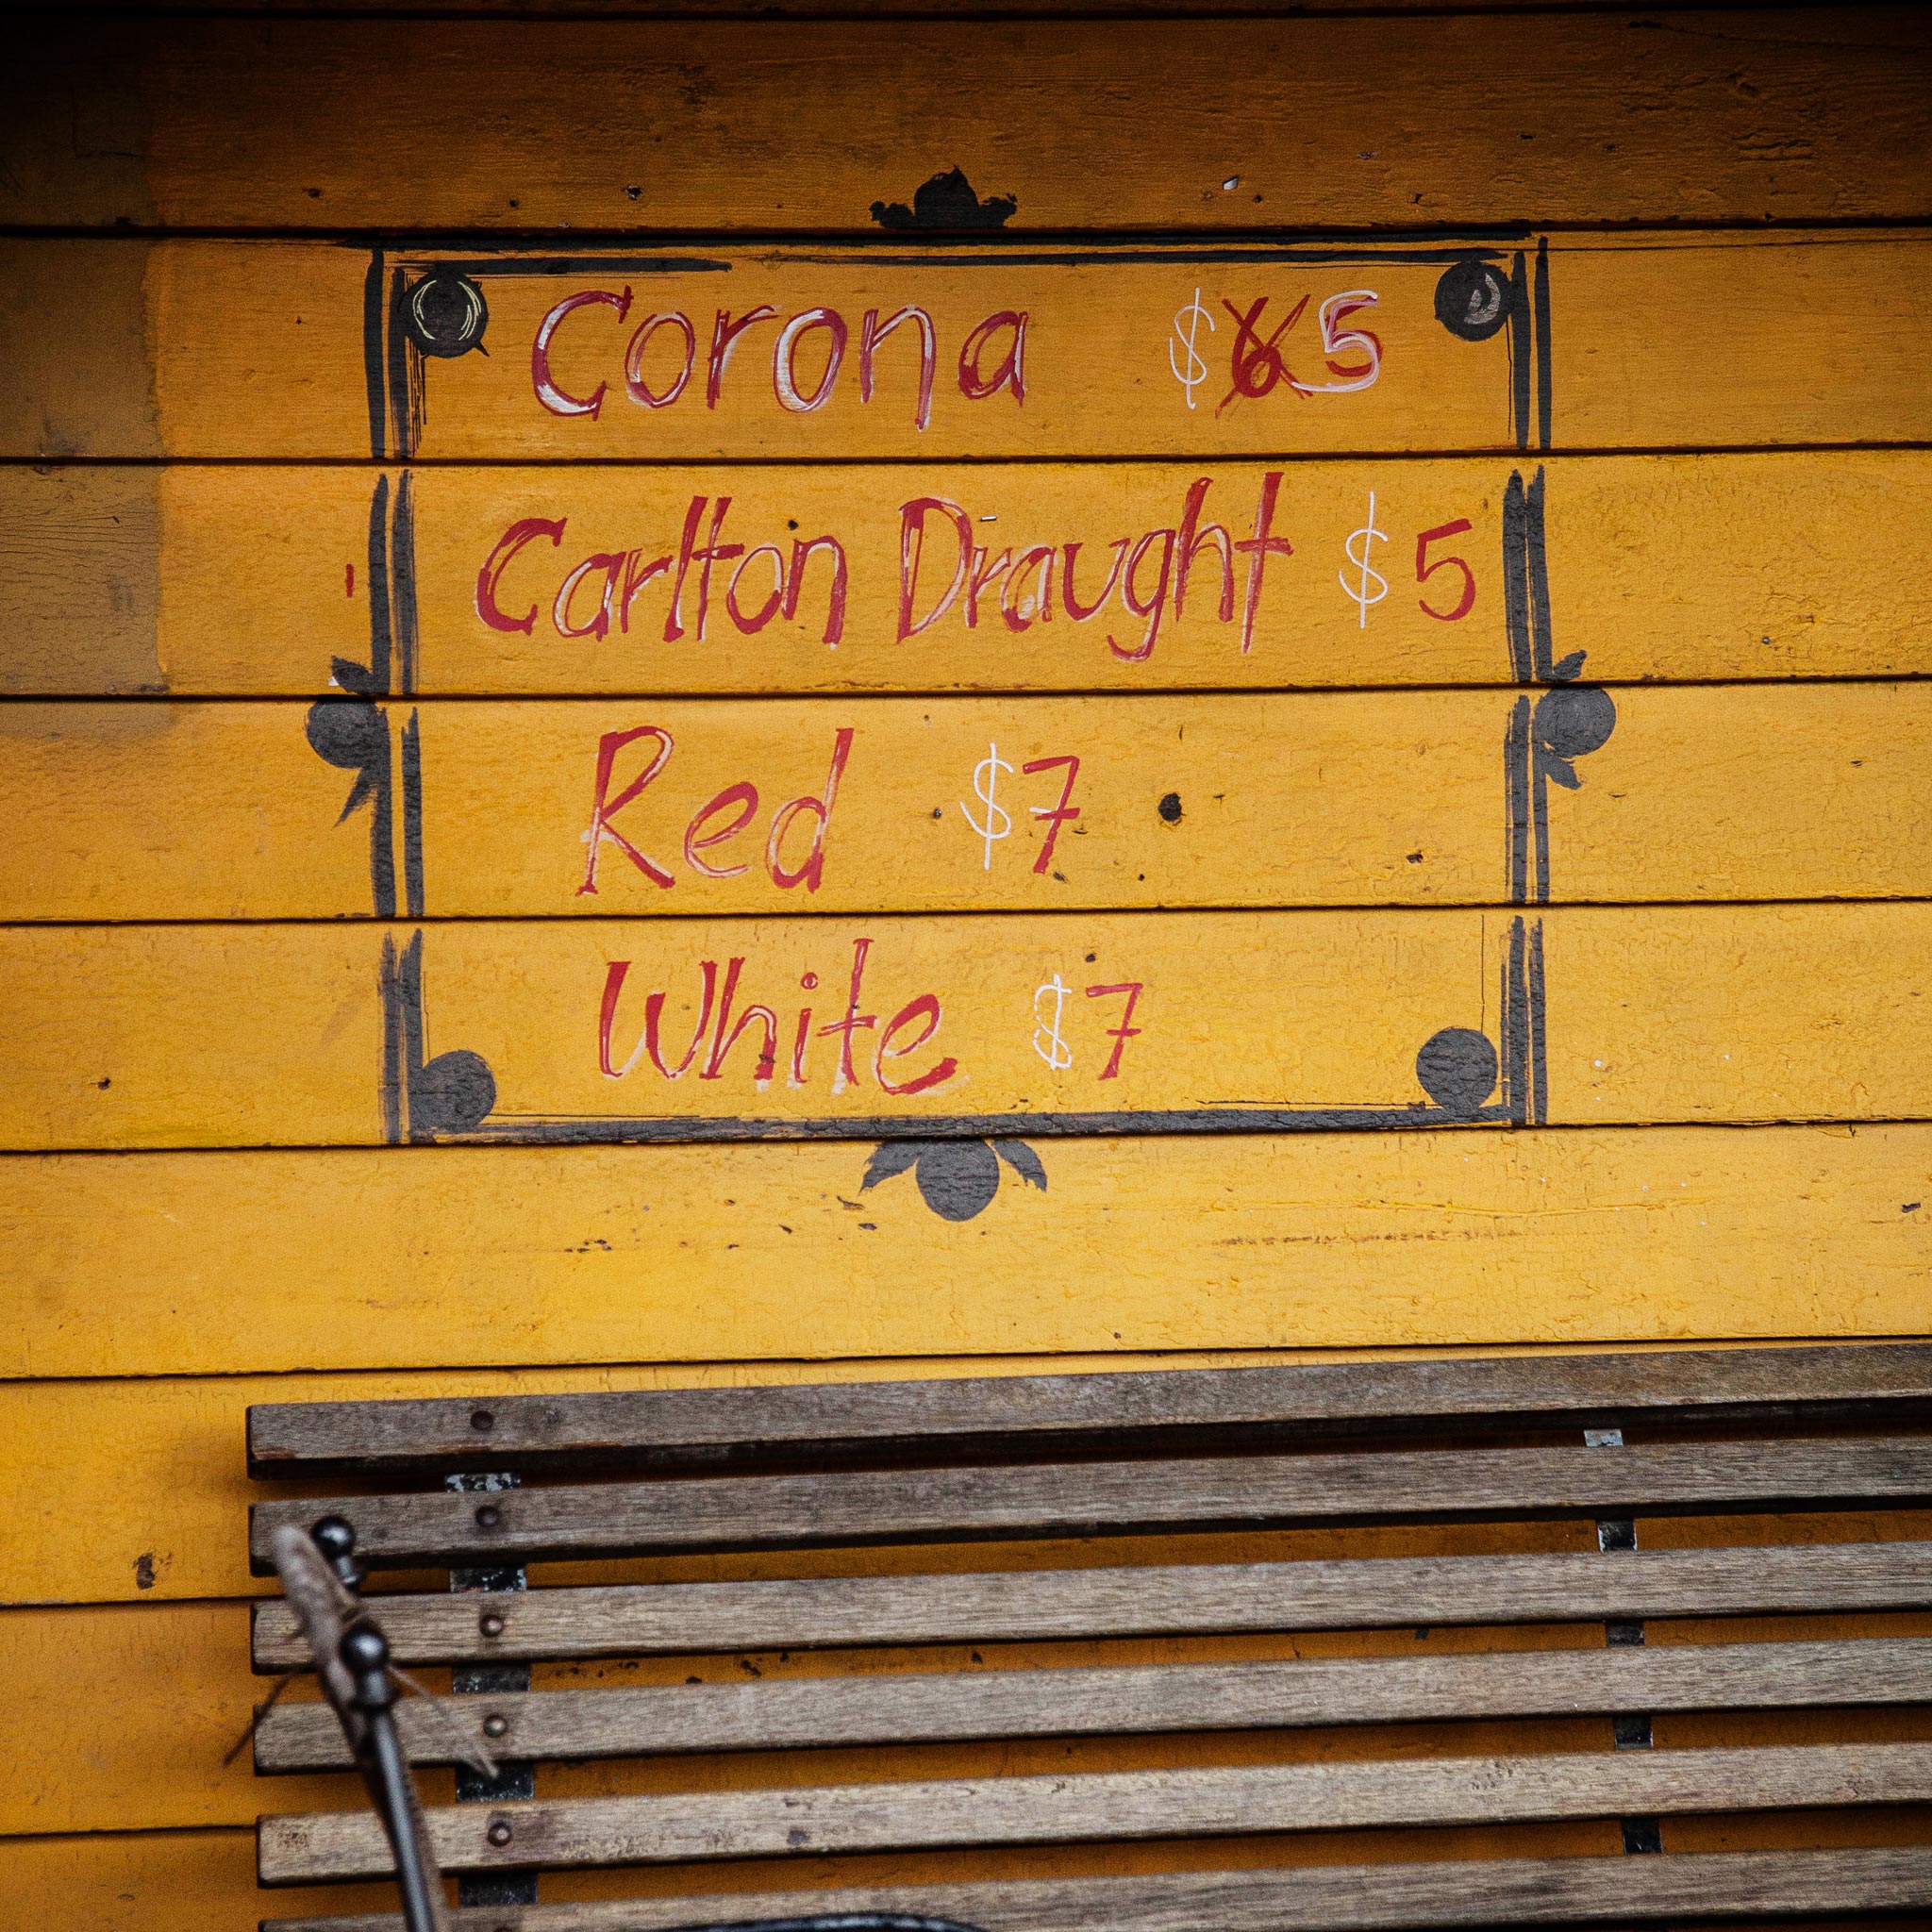 Corona $6 5
Carlton Draught $5
Red $7
White $7